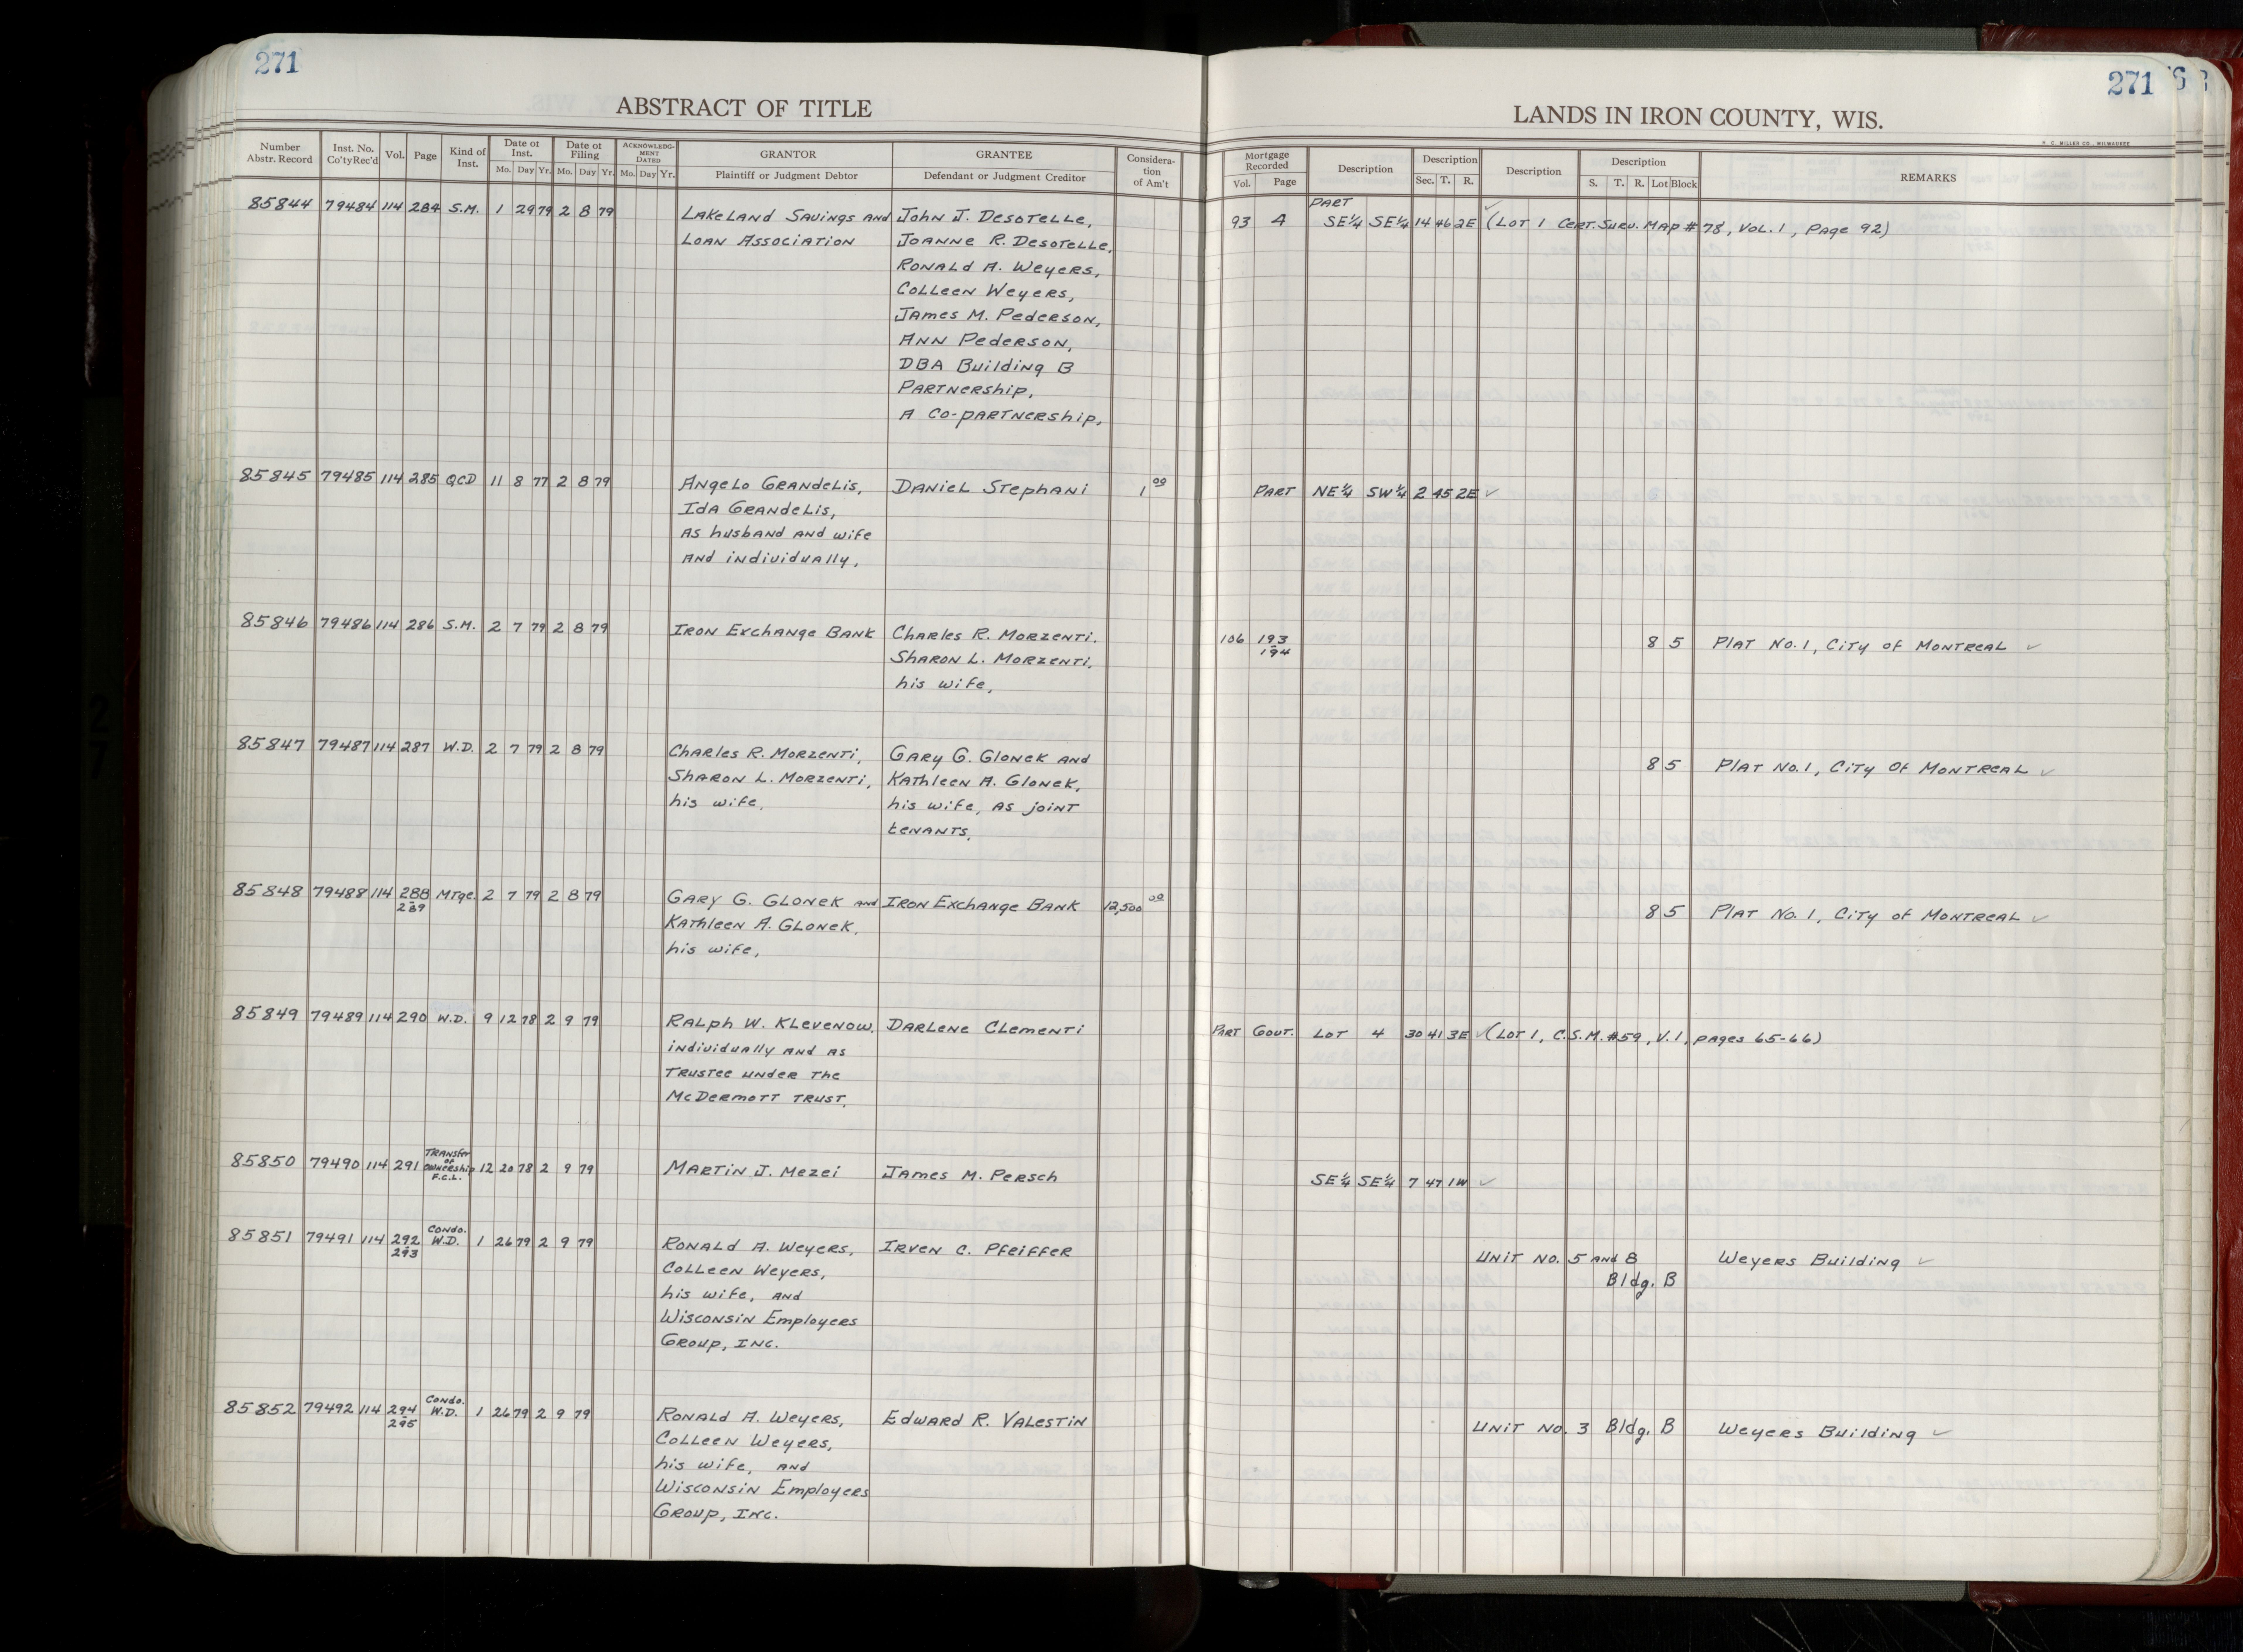 271
271
ABSTRACT OF TITLE
LANDS IN IRON COUNTY, WIS.
H. C. MILLER CO., MILWAUKEE
Number Abstr. Record Inst. No. Co'ty Rec'd Vol. Page Kind of Inst. Date of Inst. Mo. Day Yr. Date of Filing Mo. Day Yr. ACKNOWLEDGMENT DATED Mo. Day Yr. GRANTOR Plaintiff or Judgment Debtor GRANTEE Defendant or Judgment Creditor Consideration of Am't Mortgage Recorded Vol. Page Description Description Sec. T. R. Description Description S. T. R. Lot Block REMARKS
PART
85844 79484 114 284 S.M. 1 29 79 2 8 79 Lakeland Savings and John J. Desotelle, 93 4 SE¼ SE¼ 14 46 2E (Lot 1 Cert. Surv. Map #78, Vol. 1, Page 92)
Loan Association Joanne R. Desotelle,
Ronald A. Weyers,
Colleen Weyers,
James M. Pederson,
Ann Pederson,
DBA Building B
Partnership,
A Co-partnership,
85845 79485 114 285 QCD 11 8 77 2 8 79 Angelo Grandelis, Daniel Stephani 1 00 Part NE¼ SW¼ 2 45 2E
Ida Grandelis,
as husband and wife
and individually,
85846 79486 114 286 S.M. 2 7 79 2 8 79 Iron Exchange Bank Charles R. Morzenti. 106 193 8 5 Plat No. 1, City of Montreal
Sharon L. Morzenti, 194
his wife,
85847 79487 114 287 W.D. 2 7 79 2 8 79 Charles R. Morzenti, Gary G. Glonek and 8 5 Plat No. 1, City of Montreal
Sharon L. Morzenti, Kathleen A. Glonek,
his wife, his wife, as joint
tenants,
85848 79488 114 288 Mtge. 2 7 79 2 8 79 Gary G. Glonek and Iron Exchange Bank 12,500 00 8 5 Plat No. 1, City of Montreal
289 Kathleen A. Glonek,
his wife,
85849 79489 114 290 W.D. 9 12 78 2 9 79 Ralph W. Klevenow, Darlene Clementi Part Govt. Lot 4 30 41 3E (Lot 1, C.S.M. #59, V. 1, pages 65-66)
individually and as
Trustee under the
McDermott Trust,
85850 79490 114 291 Transfer of Ownership F.C.L. 12 20 78 2 9 79 Martin J. Mezei James M. Persch SE¼ SE¼ 7 47 1W
85851 79491 114 292 Condo. W.D. 1 26 79 2 9 79 Ronald A. Weyers, Irven C. Pfeiffer Unit No. 5 and 8 Weyers Building
293 Colleen Weyers, Bldg. B
his wife, and
Wisconsin Employers
Group, Inc.
85852 79492 114 294 Condo. W.D. 1 26 79 2 9 79 Ronald A. Weyers, Edward R. Valestin Unit No. 3 Bldg. B Weyers Building
295 Colleen Weyers,
his wife, and
Wisconsin Employers
Group, Inc.